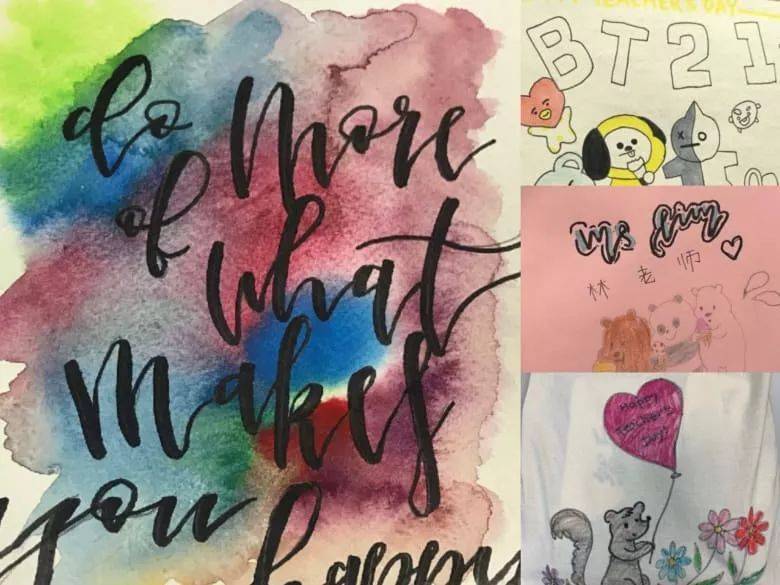 do more
of
what
makes
you
happy
TEACHER'S DAY
BT21
ms lim
林老师
Happy
Teachers
Day!